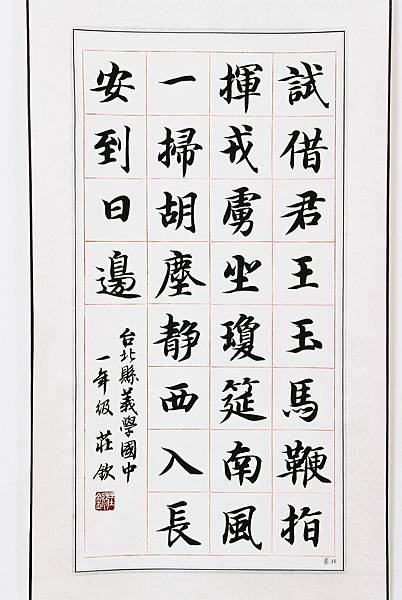 試借君王玉馬鞭指
揮戎虜坐瓊筵南風
一掃胡塵静西入長
安到日邊
台北縣義學國中
一年級 莊欽